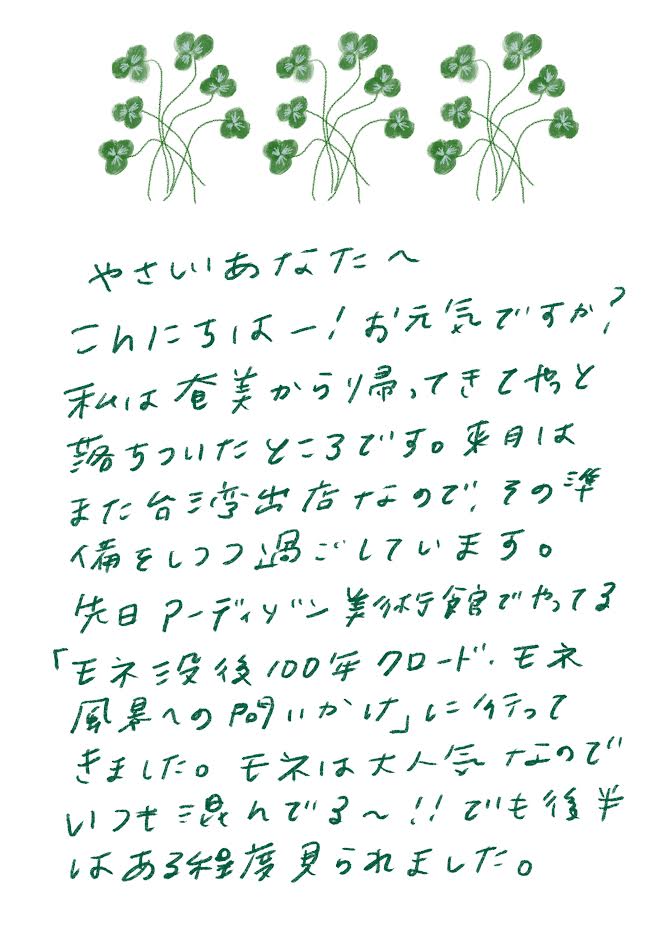 やさしいあなたへ
こんにちはー！お元気ですか？
私は奄美から帰ってきてやっと
落ちついたところです。来月は
また台湾出店なので、その準
備をしつつ過ごしています。
先日アーティゾン美術館でやってる
「モネ没後100年クロード・モネ
風景への問いかけ」に行って
きました。モネは大人気なので
いつも混んでる〜!!でも後半
はある程度見られました。